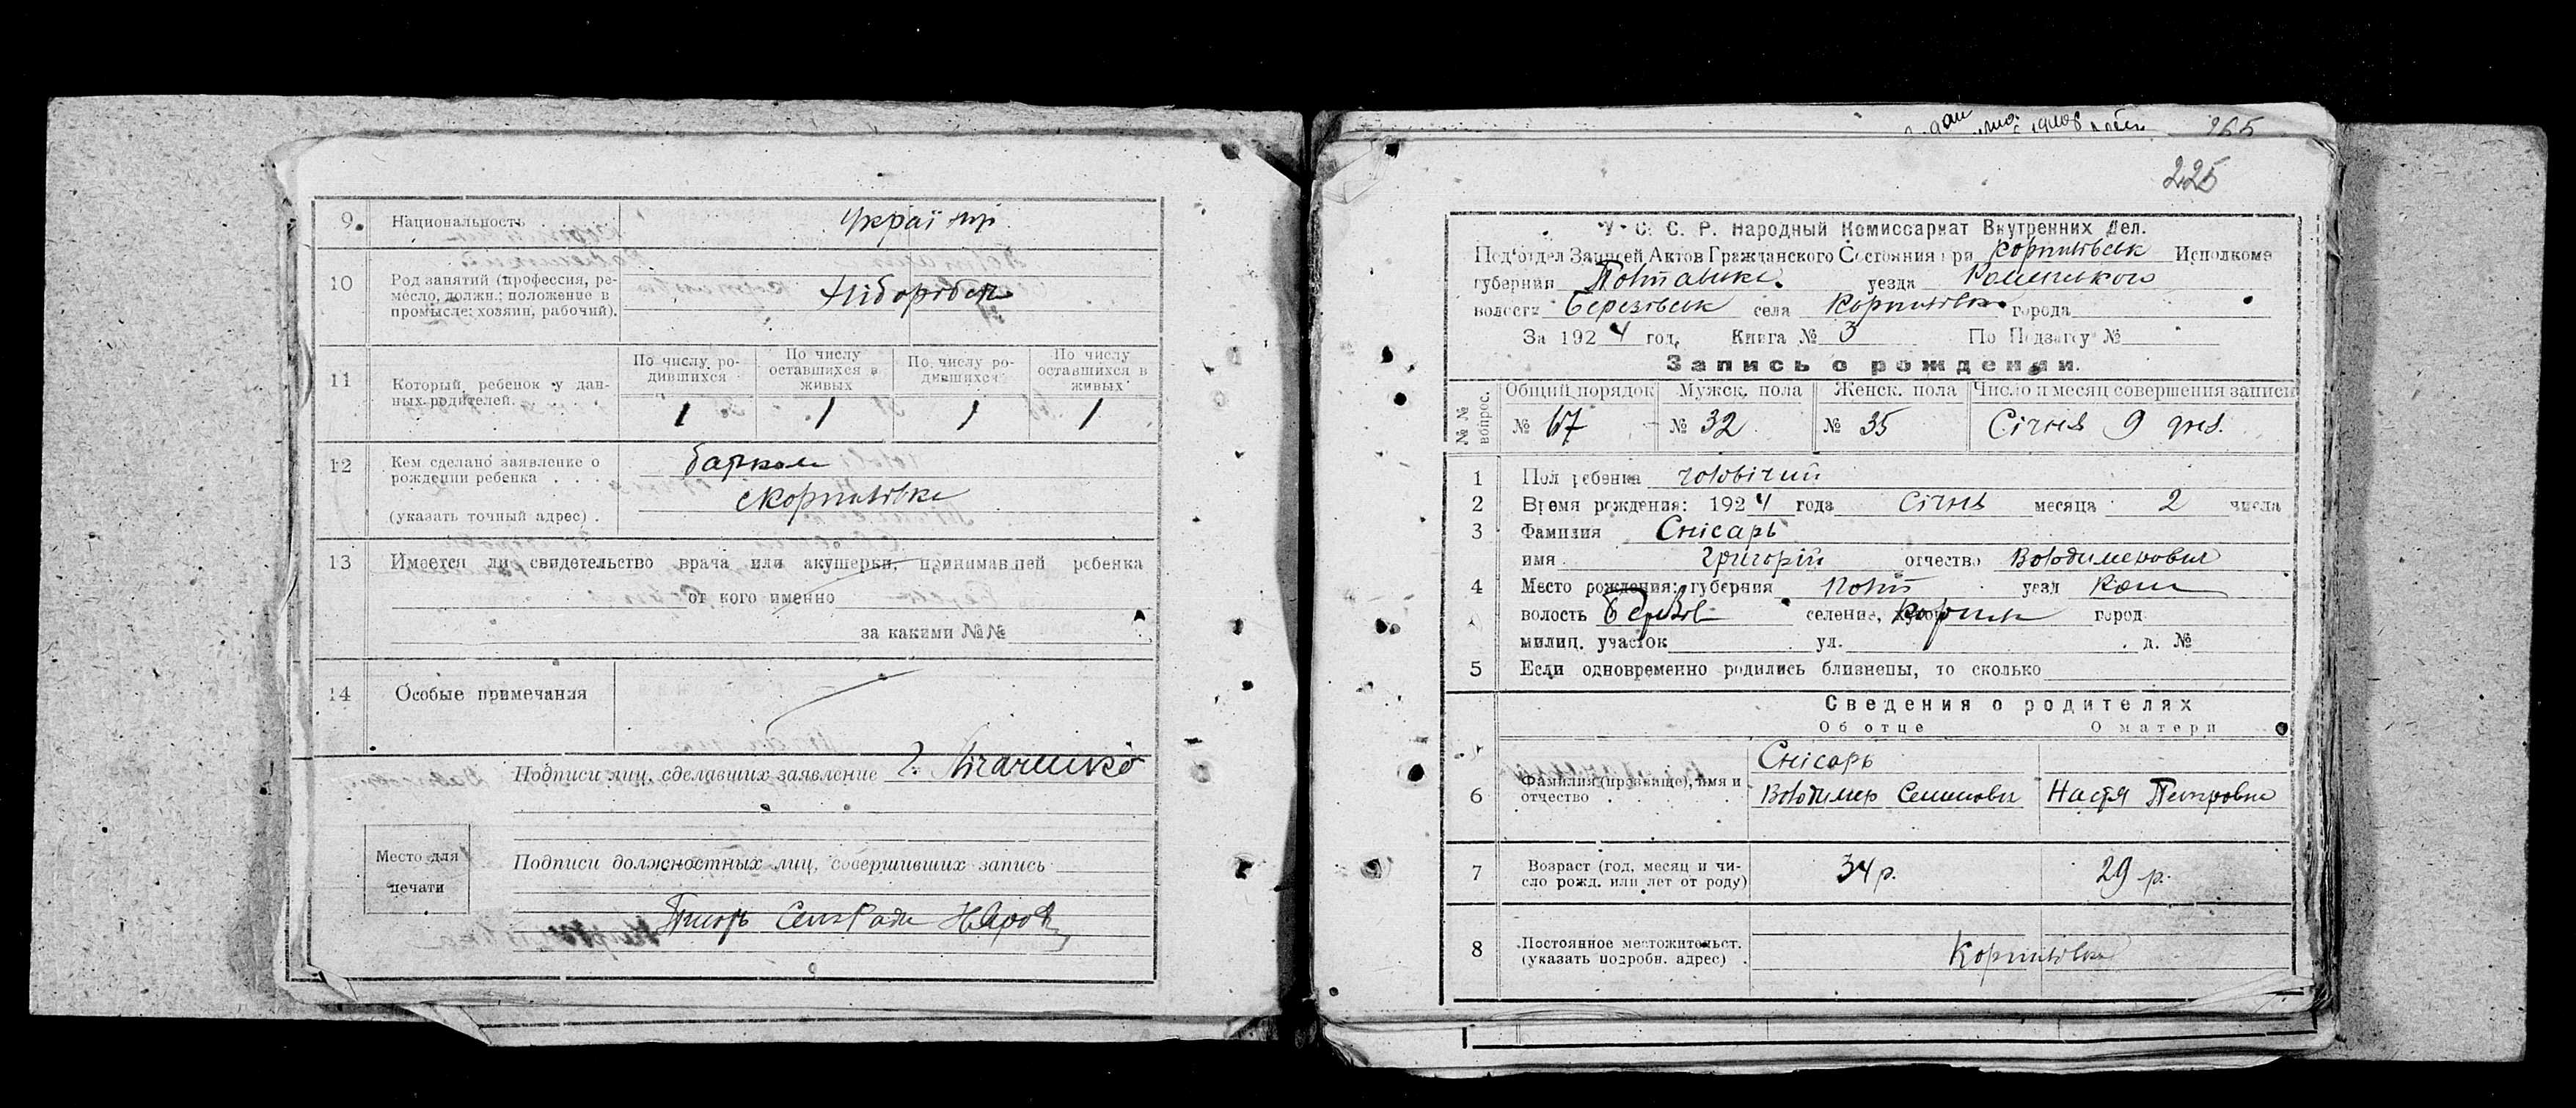 9. Национальность Украї нці
10 Род занятий (профессия, ре-
месло, должн.; положение в
промысле: хозяин, рабочий). Хліборобст
11 Который ребенок у дан-
ных родителей.
По числу ро-
дившихся
По числу
оставшихся в
живых
По числу ро-
дившихся
По числу
оставшихся в
живых
1 1 1 1
12 Кем сделано заявление о
рождении ребенка . . .
(указать точный адрес) .
батьком
с Корнилівка
13 Имеется ли свидетельство врача или акушерки, принимавшей ребенка
от кого именно
за какими №№
14 Особые примечания
Подписи лиц, сделавших заявление
Место для
печати
Подписи должностных лиц, совершивших запись
265
225
У. С. С. Р. Народный Комиссариат Внутренних Дел.
Под'отдел Записей Актов Гражданского Состояния при Корнилівськ Исполкоме
губернии Полтавськ. уезда
волости Березівськ села Корнилівка города
За 1924 год, Книга № 3 По Подзагсу №
Запись о рождении.
№№ вопрос.
Общий порядок Мужск. пола Женск. пола Число и месяц совершения записи
№ 67 № 32 № 35 Січня 9 дня.
1 Пол ребенка чоловічий
2 Время рождения: 1924 года Січня месяца 2 числа
3 Фамилия Снісарь
имя Григорій отчество Володимерович
4 Место рождения: губерния Полт уезд
волость Березів селение, хутор Корнил город
милиц. участок ул. д. №
5 Если одновременно родились близнецы, то сколько
Сведения о родителях
Об отце О матери
6 Фамилия (прозвище), имя и
отчество
Снісарь
Володимер Семенович Настя Петровна
7 Возраст (год, месяц и чи-
сло рожд. или лет от роду) 34 р. 29 р.
8 Постоянное местожительст.
(указать подробн. адрес) . Корнилівка